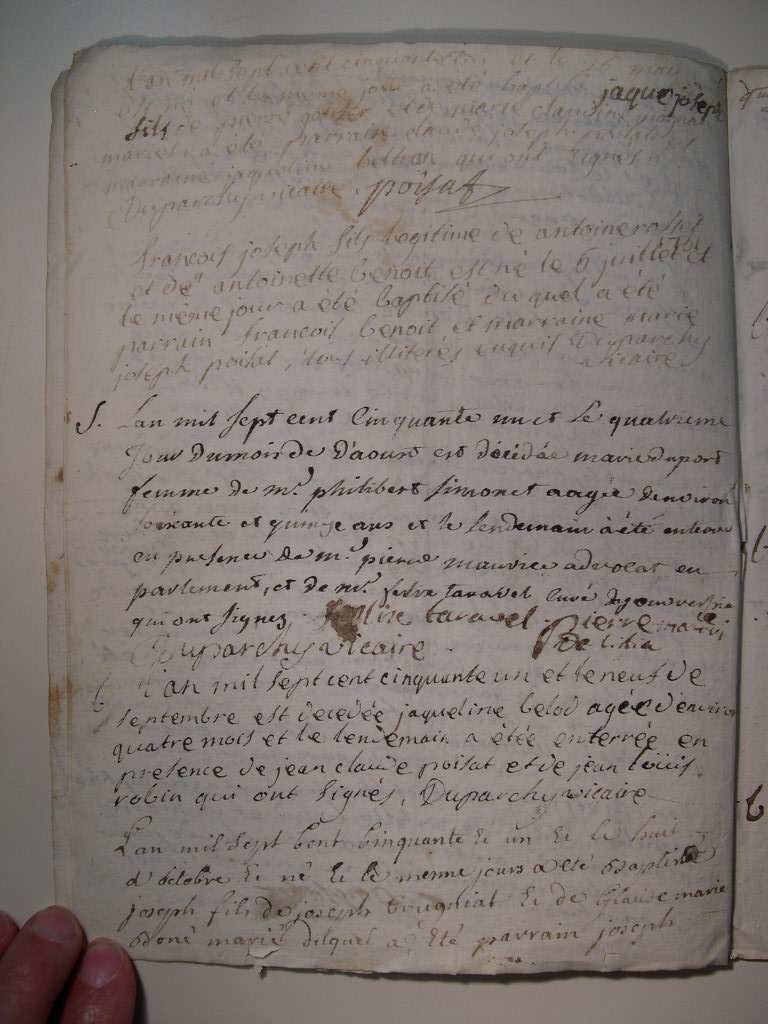 L'an mil sept cent cinquante un et le 16 may
est né et le meme jour a été baptisé jaque joseph
fils de pierre et de marie claudine
marcel a été parrain claude joseph
marraine jaqueline belhon qui ont signés
Duparchy vicaire. poisat
francois joseph fils legitime de antoine rosset
et de antoinette benoit est né le 6 juillet et
le même jour a été baptisé duquel a été
parrain francois benoit et marraine marie
joseph poisat, tous illiterés enquis Duparchy
vicaire
S. Lan mil sept cent cinquante un et le quatrieme
jour du mois de d'aoust est décédée marie duport
femme de mr. philibert simonet aagée denviron
soixante et quinze ans et le lendemain à été enterré
en presence de mr. pierre maurice advocat en
parlement, et de mr. taravel curé
qui ont signez. taravel. pierre
Duparchy vicaire.
L'an mil sept cent cinquante un et le neuf de
septembre est decedée jaqueline belod agée d'environ
quatre mois et le lendemain a étée enterrée en
presence de jean claude poisat et de jean louis
robin qui ont signés, Duparchy vicaire
L'an mil sept cent cinquante et un et le huit
d'octobre et né et le meme jours a eté baptisé
joseph fils de joseph bougniat et de Claude marie
marié dilquel a été parrain joseph